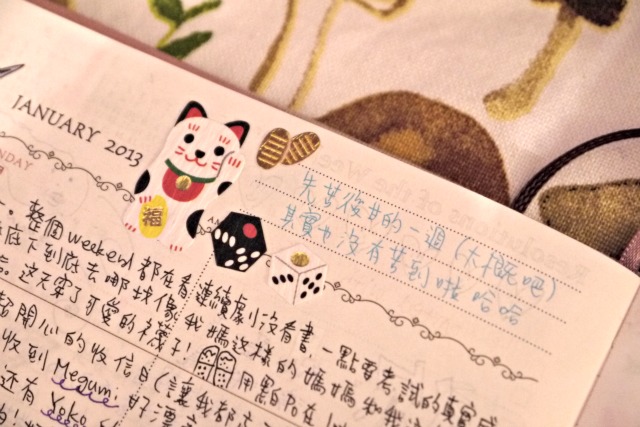 JANUARY 2013
NDAY
福
先苦後甘的一週(大概吧)
其實也沒有苦到啦 哈哈
整個weekend都在看連續劇沒看書 一點要考試的真實
下到底去哪找像我媽這樣的媽媽和我
這天穿了可愛的襪子! 用點
開心的收信日(讓我都
收到Megumi 好漂
還有 Yoko